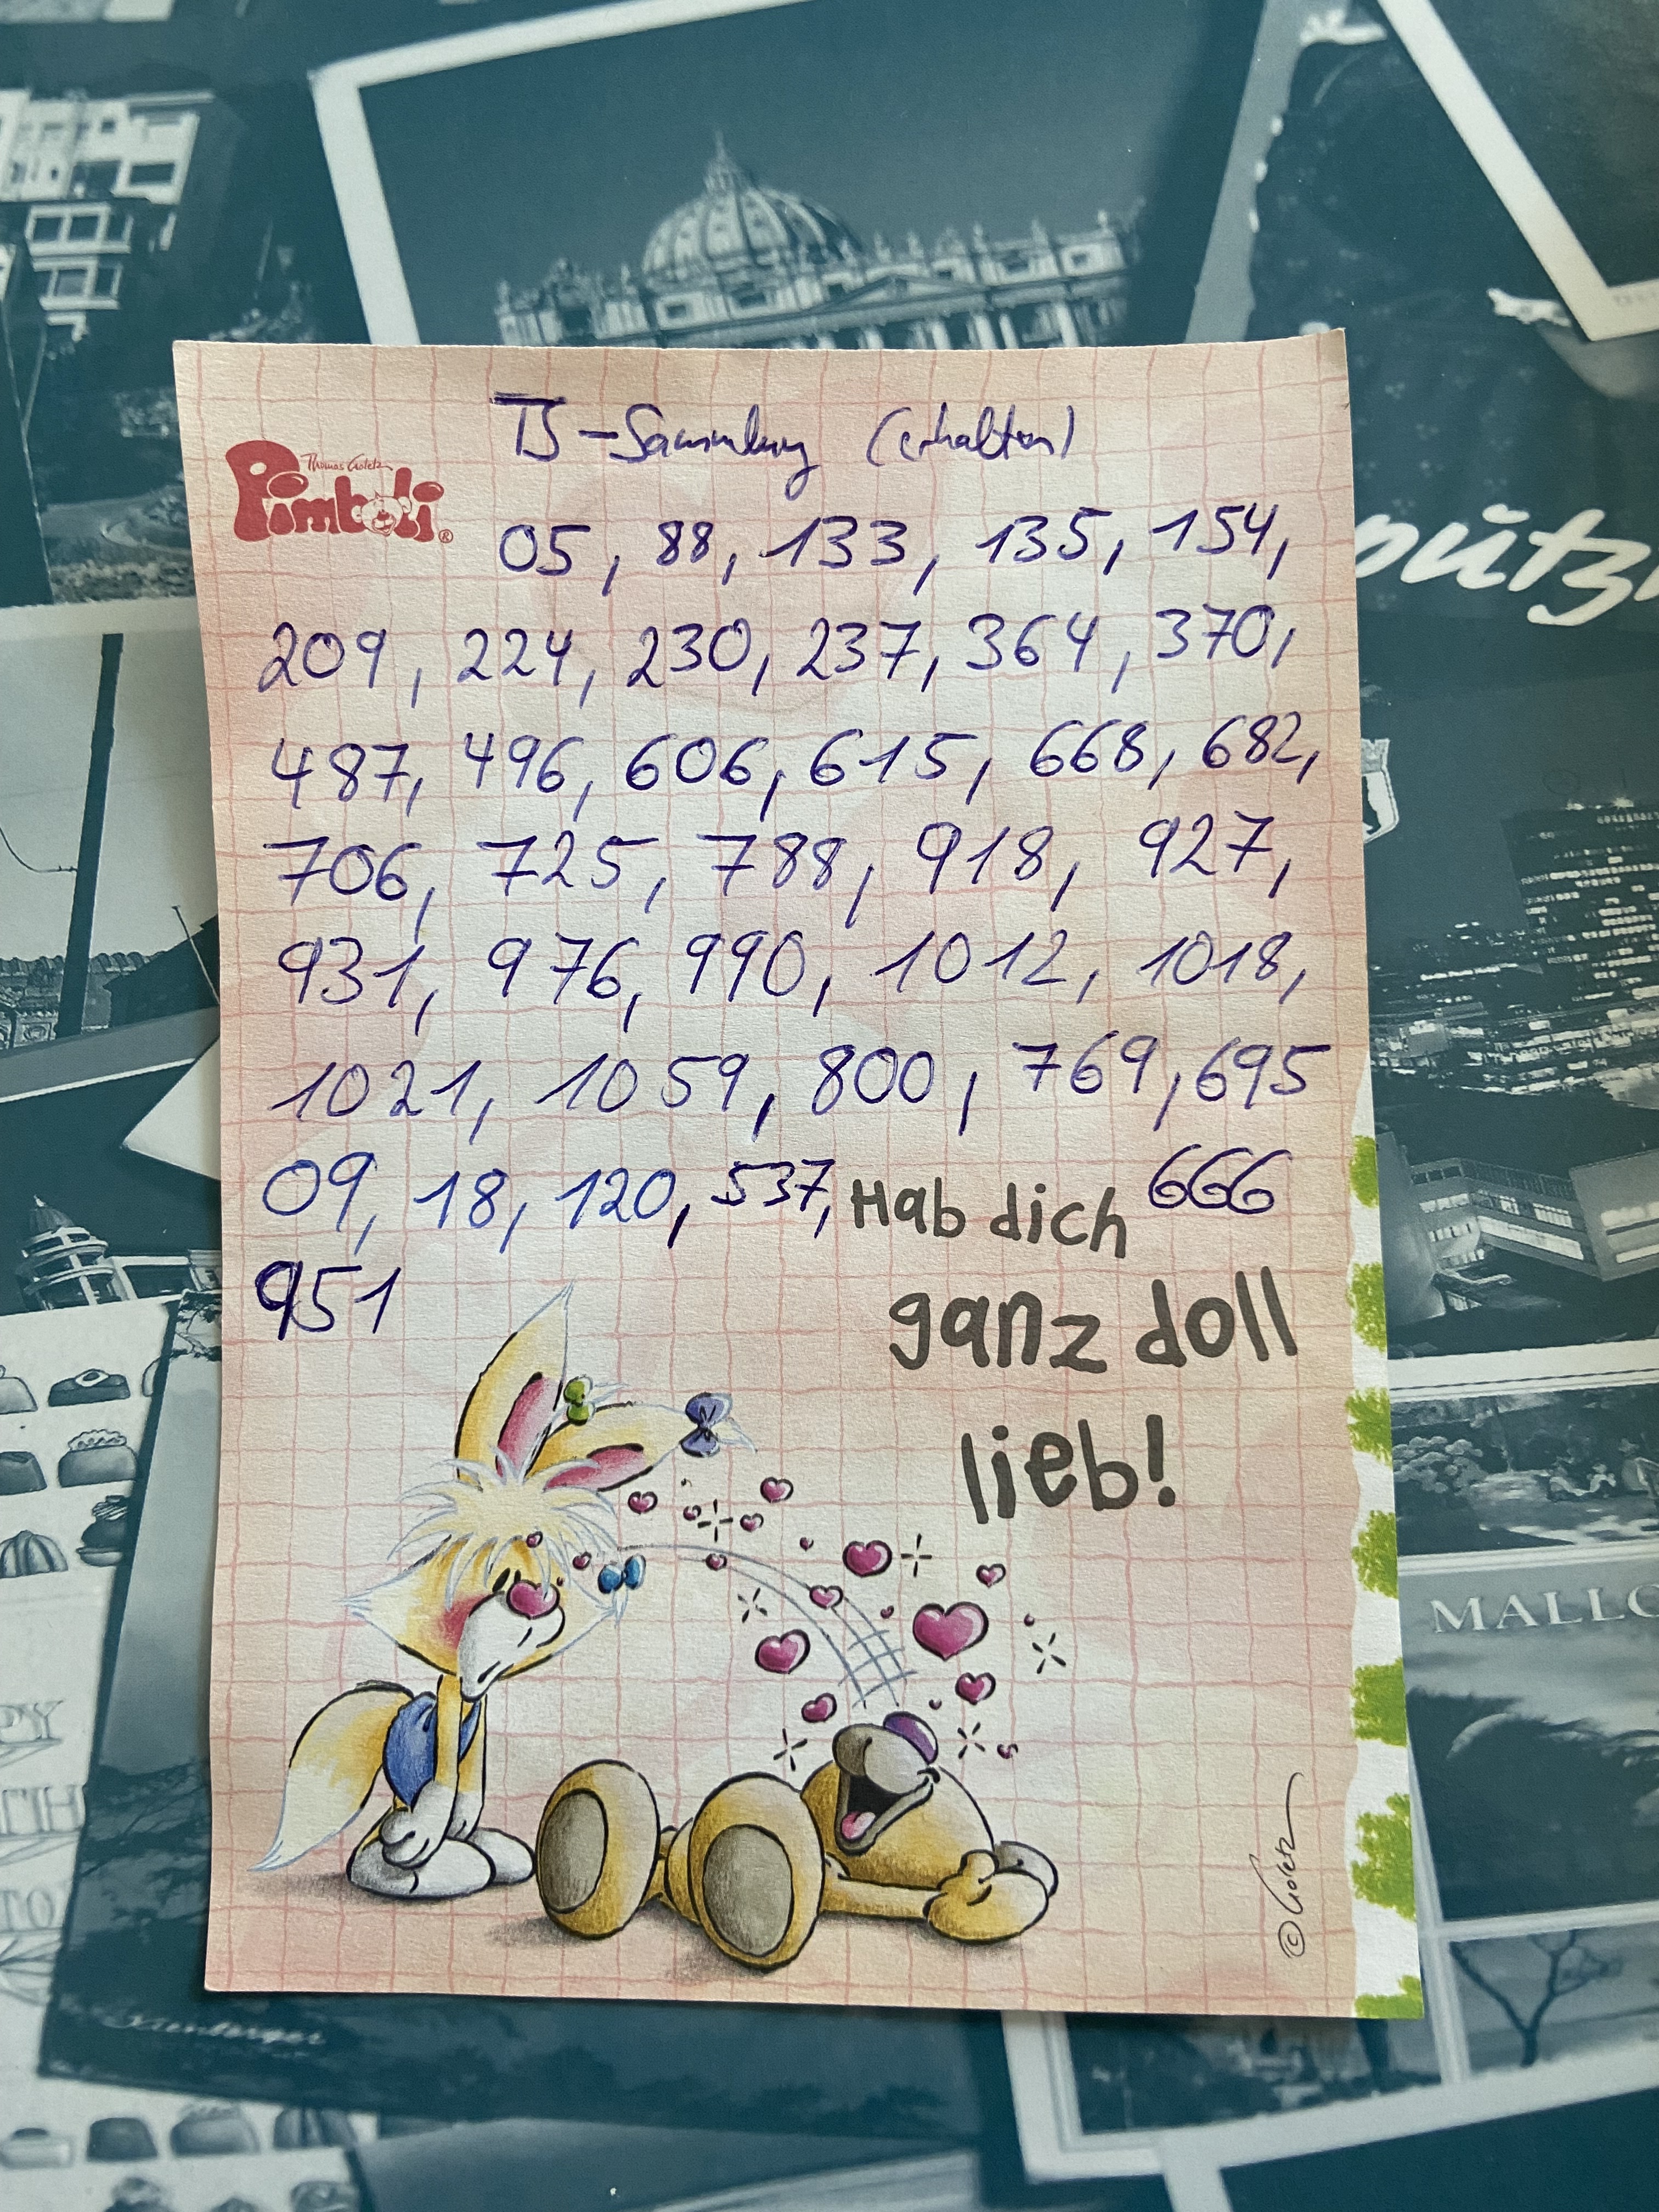 pütz
TS-Sammlung (erhalten)
Thomas Goletz
Pimboli®
05, 88, 133, 135, 154,
209, 224, 230, 237, 364, 370,
487, 496, 606, 615, 668, 682,
706, 725, 788, 918, 927,
931, 976, 990, 1012, 1018,
1021, 1059, 800, 769, 695
09, 18, 120, 537, 666
951
Hab dich
ganz doll
lieb!
MALLO
© Goletz